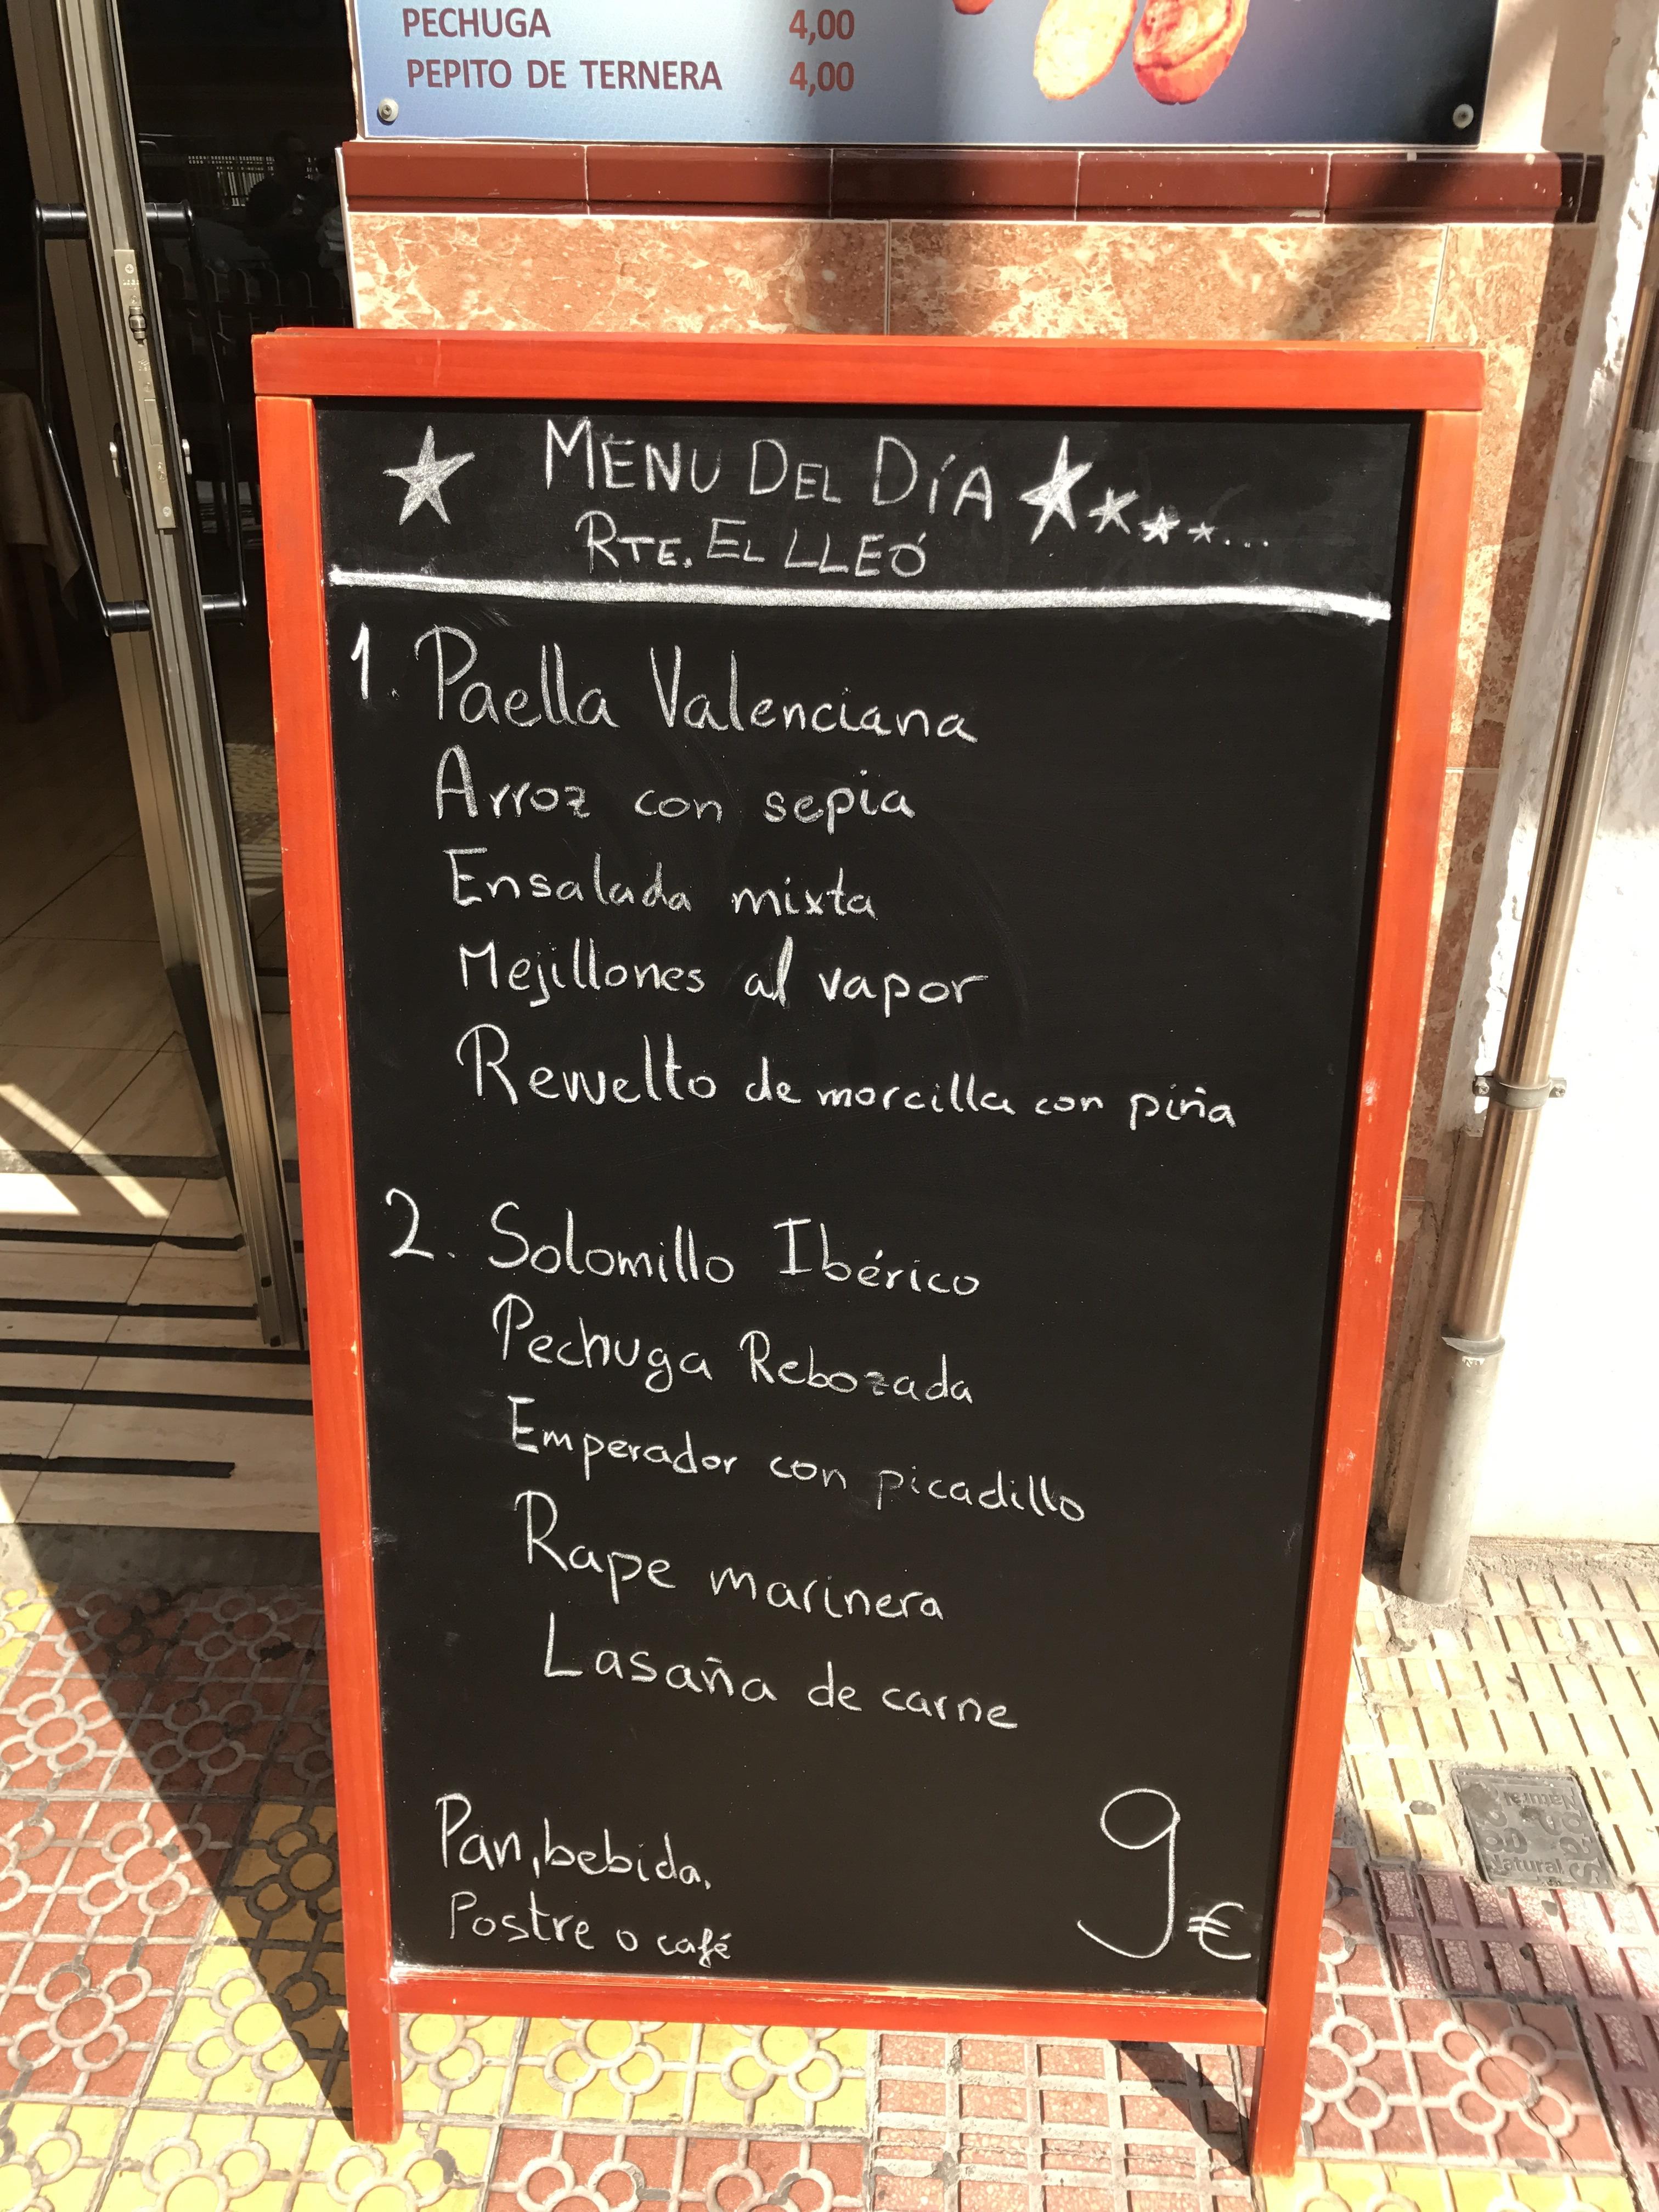 PECHUGA 4,00
PEPITO DE TERNERA 4,00
MENU DEL DÍA
RTE. EL LLEÓ
1. Paella Valenciana
Arroz con sepia
Ensalada mixta
Mejillones al vapor
Revuelto de morcilla con piña
2. Solomillo Ibérico
Pechuga Rebozada
Emperador con picadillo
Rape marinera
Lasaña de carne
Pan, bebida,
Postre o café
9€
Natural
Natural